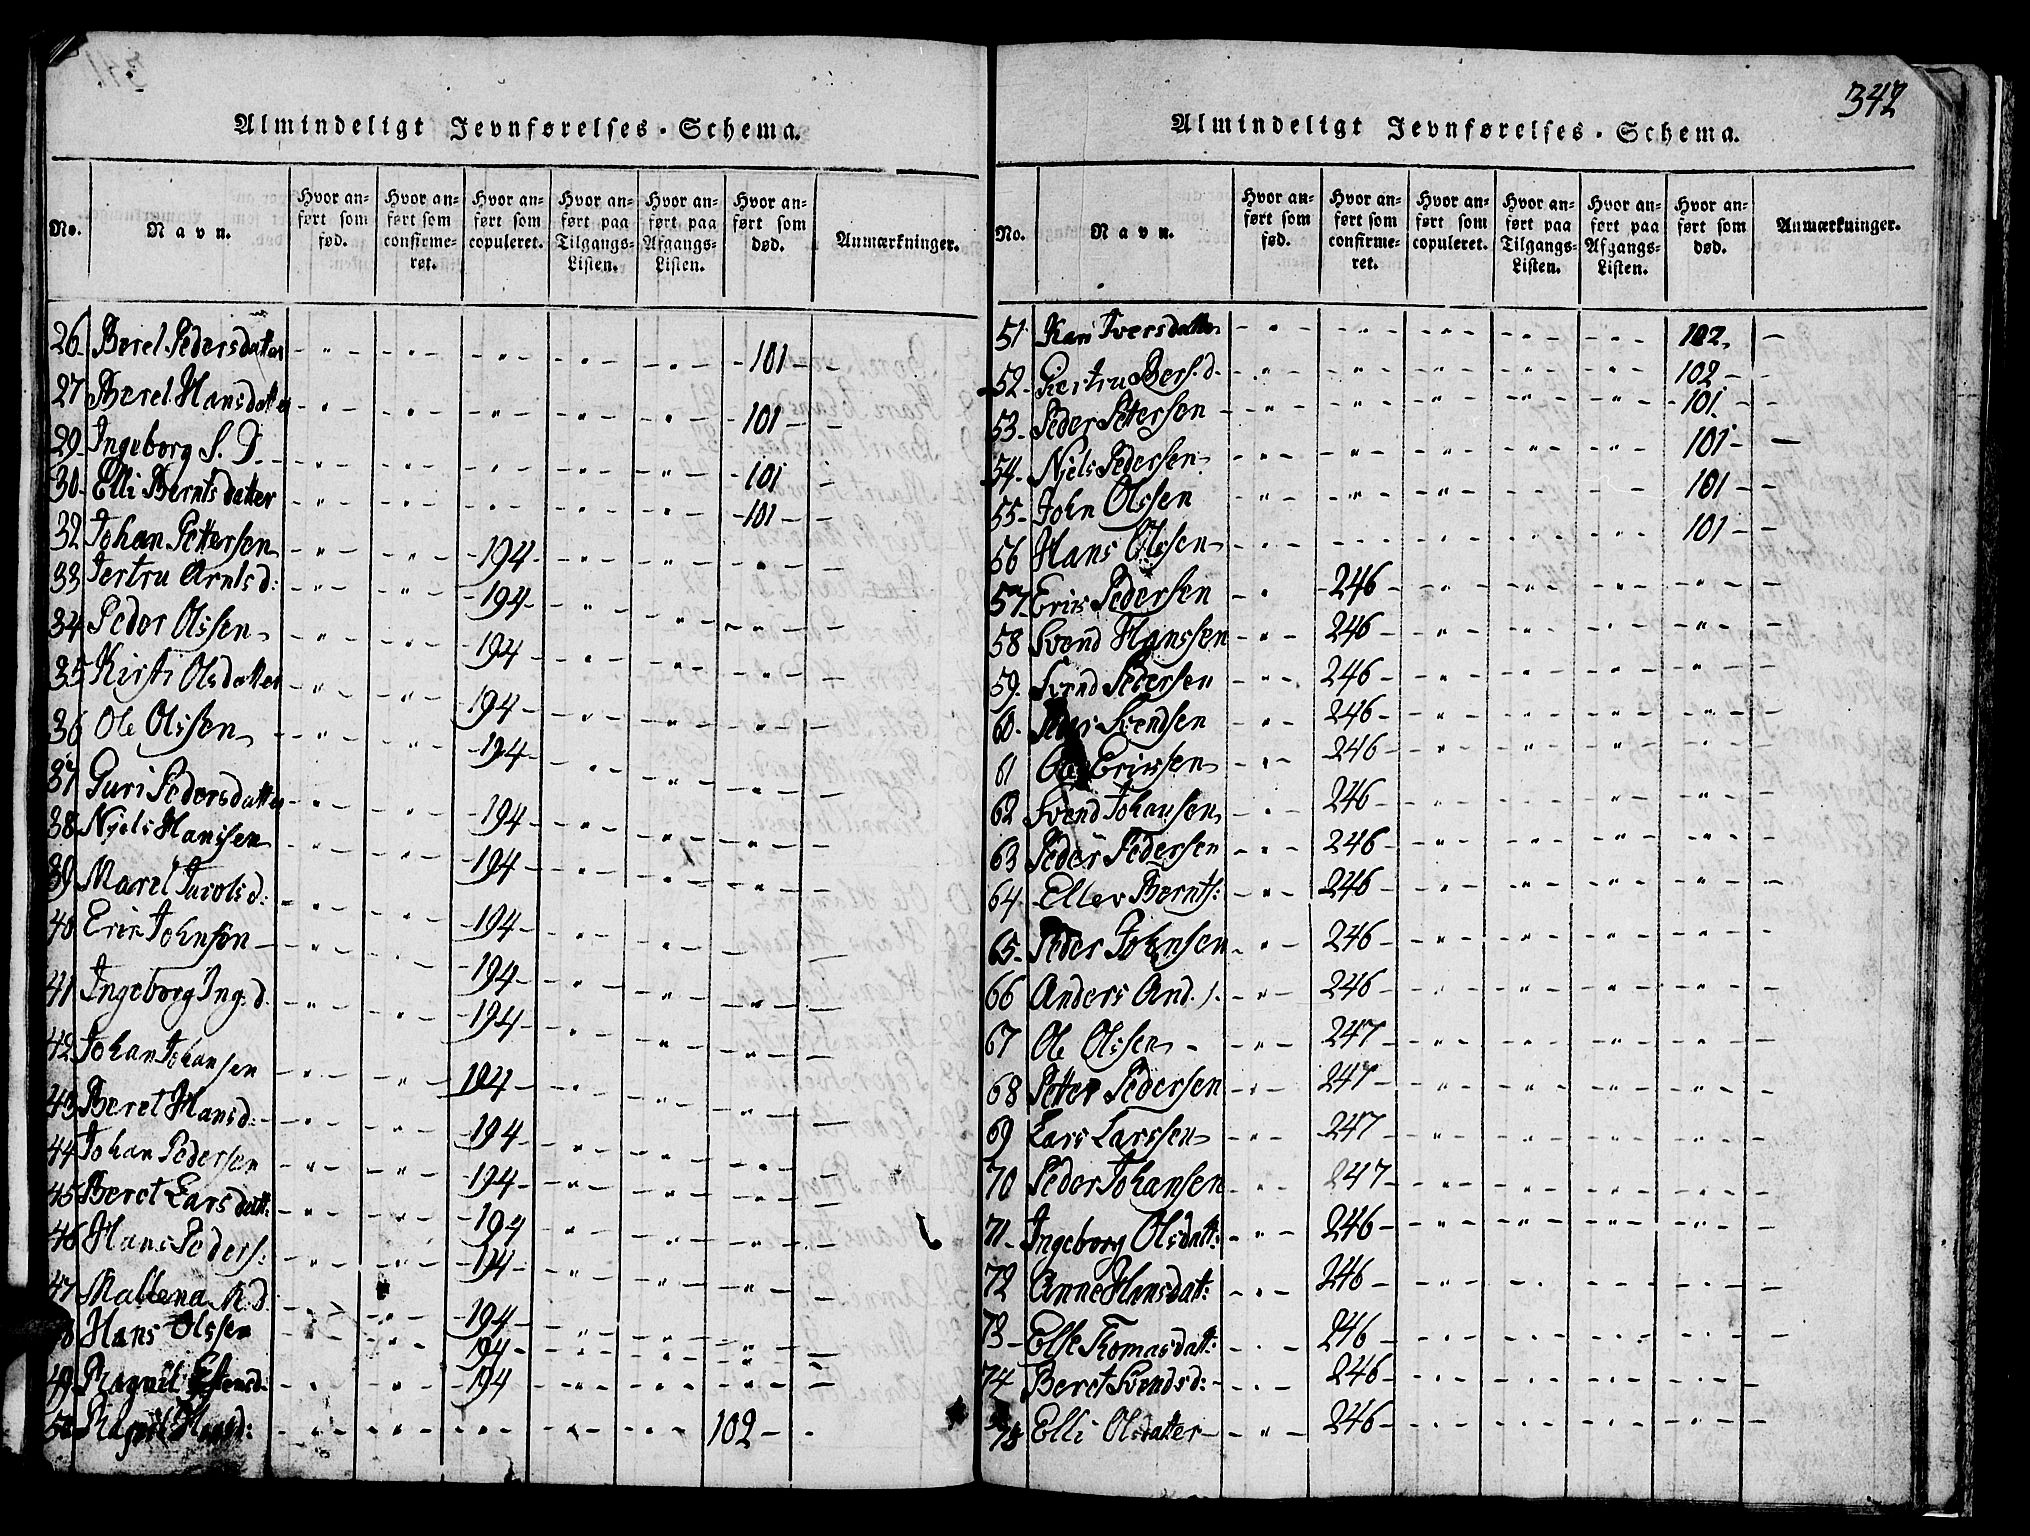 Almindeligt Jevnførelses-Schema.
No. Navn. Hvor anført som fød. Hvor anført som confirmeret. Hvor anført som copuleret. Hvor anført paa Tilgangs-Listen. Hvor anført paa Afgangs-Listen. Hvor anført som død. Anmærkninger.
26 Berel Pedersdatter 101
27 Berel Hansdatter 101
29 Ingeborg S. D. 101
30 Elli Berntsdatter 101
32 Johan Pettersen 194
33 Jertru Arntsd: 194
34 Peder Olssen 194
35 Kirsti Olsdatter 194
36 Ole Olssen 194
37 Guri Pedersdatter 194
38 Niels Hanssen 194
39 Marel 194
40 Erik Johnsen 194
41 Ingeborg Ing. d. 194
42 Johan Johansen 194
43 Beret Hansd: 194
44 Johan Pedersen 194
45 Beret Larsdatt: 194
46 Hans Peders: 194
47 Mallena d 194
48 Hans Olssen 194
49 Ragnil 194
50 Ragnil 102
342
Almindeligt Jevnførelses-Schema.
No. Navn. Hvor anført som fød. Hvor anført som confirmeret. Hvor anført som copuleret. Hvor anført paa Tilgangs-Listen. Hvor anført paa Afgangs-Listen. Hvor anført som død. Anmærkninger.
51 Kari Iversdatter 102
52 Giertru Bers. d. 102
53 Peder Pettersen 101
54 Niels Pedersen 101
55 John Olssen 101
56 Hans Olssen 101
57 Erik Pedersen 246
58 Svend Hanssen 246
59 Svend Pedersen 246
60 Svendsen 246
61 Ole Erikssen 246
62 Svend Johansen 246
63 Peder Pedersen 246
64 Ellev Bernts: 246
65 Peder Johnsen 246
66 Anders And. 246
67 Ole Olssen 247
68 Petter Pedersen 247
69 Lars Larssen 247
70 Peder Johansen 247
71 Ingeborg Olsdatt: 246
72 Anne Hansdatt: 246
73 Else Tomasdatt: 246
74 Beret Svendsd: 246
75 Elli Olsdatter 246